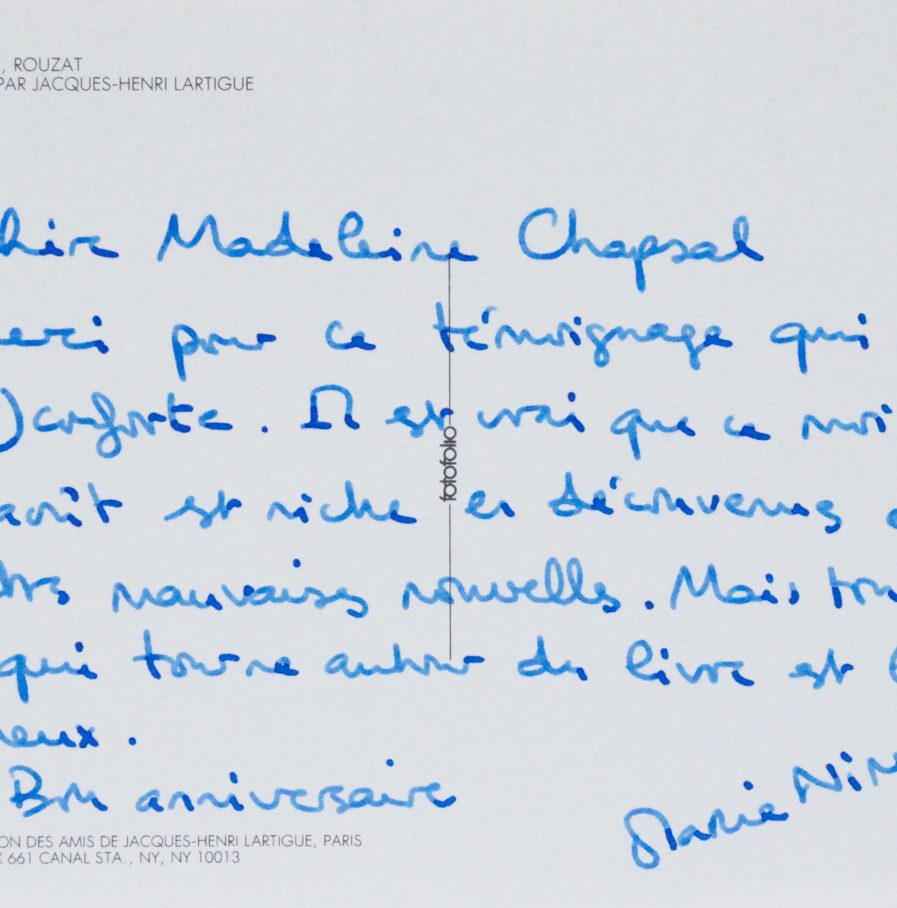 , ROUZAT
PAR JACQUES-HENRI LARTIGUE
hère Madeleine Chapsal
erci pour ce témoignage qui
)conforte. Il est vrai que ce moi
août est riche en déconvenues
mauvaises nouvelles. Mais tou
qui tourne autour du livre est
eux.
Bon anniversaire
Marie Nim
fotofolio
ON DES AMIS DE JACQUES-HENRI LARTIGUE, PARIS
X 661 CANAL STA., NY, NY 10013